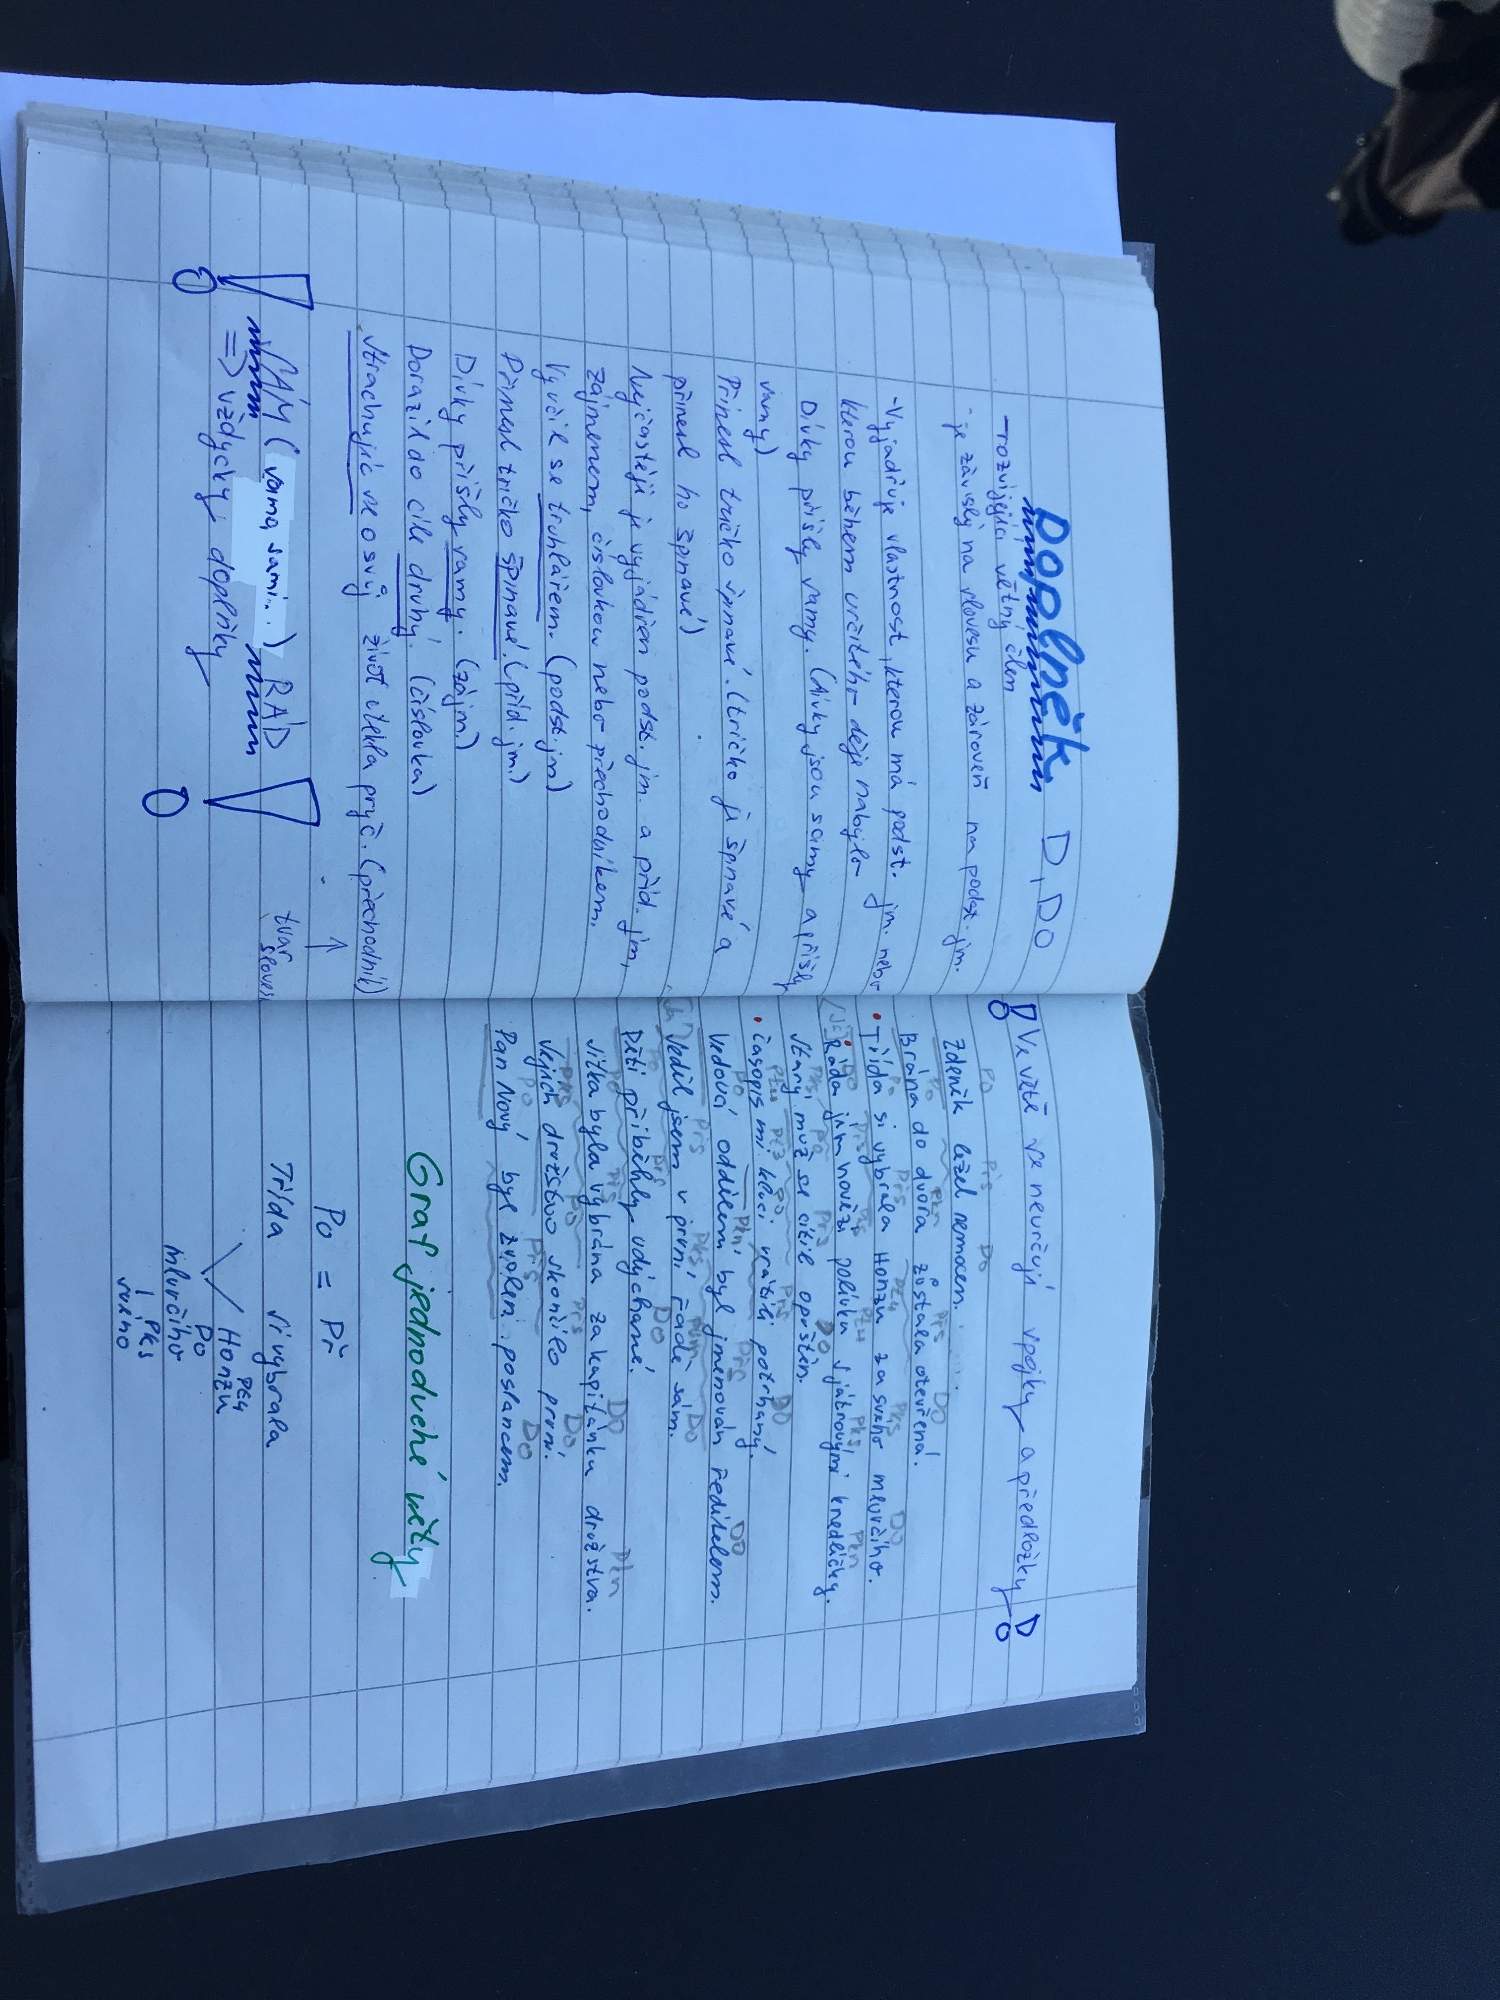 Doplněk D, DO
- rozvíjející větný člen
- je závislý na slovesu a zároveň na podst. jm.
- Vyjadřuje vlastnost, kterou má podst. jm. nebo
kterou během určitého děje nabylo
Dívky přišly samy. (dívky jsou samy a přišly
samy)
Přinesl tričko špinavé. (tričko je špinavé a
přinesl ho špinavé)
Nejčastěji je vyjádřen podst. jm. a příd. jm,
zájmenem, číslovkou nebo přechodníkem.
Vyučil se truhlářem. (podst. jm)
Přinesl tričko špinavé. (příd. jm.)
Dívky přišly samy. (zájm.)
Dorazil do cíle druhý. (číslovka)
Strachujíc se o svůj život utekla pryč. (přechodník)
tvar
sloves
SÁM (sama, sami...) RÁD
=> vždycky doplňky
Ve větě se neurčují spojky a předložky
Po Přs Do
Zdeněk ležel nemocen.
Po Pkn Přs DO
Brána do dvora zůstala otevřená.
Po Přs Pks DO
Třída si vybrala Honzu za svého mluvčího.
DO Pks Pkn
Ráda jím hovězí polévku s játrovými knedlíčky.
Pks Po Přs DO
Starý muž se cítil opuštěn.
Po Přs DO
Časopis mi kluci vrátili potrhaný.
Po Pkn Přs DO
Vedoucí oddělení byl jmenován ředitelem.
Přs Pks Pum Do
Seděl jsem v první řadě sám.
Po Přs Do
Děti přiběhly udýchané.
Po Přs DO Pkn
Jitka byla vybrána za kapitánku družstva.
Pks Po Přs Do
Jejich družstvo skončilo první.
Po Přs Do
Pan Nový byl zvolen poslancem.
Graf jednoduché věty
Po = Př
Třída si vybrala
Honzu
Do
mluvčího
Pks
svého